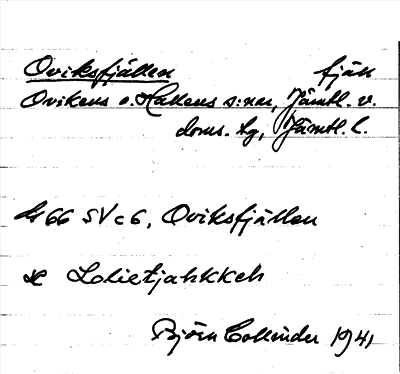 Oviksfjällen fjäll
Ovikens o. Hallens s:nar, Jämtl. v.
doms. tg, Jämtl. l.
66 SV c 6, Oviksfjällen
Lohietjahkkeh
Björn Collinder 1941